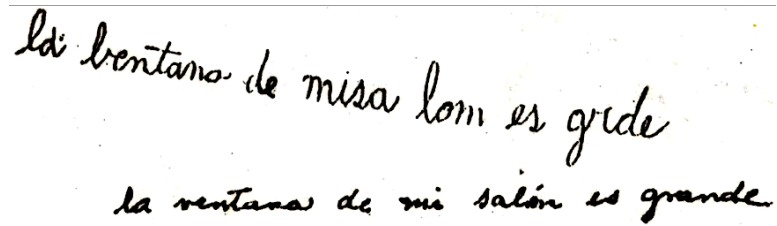 la bentana de misa lom es grde
la ventana de mi salón es grande.